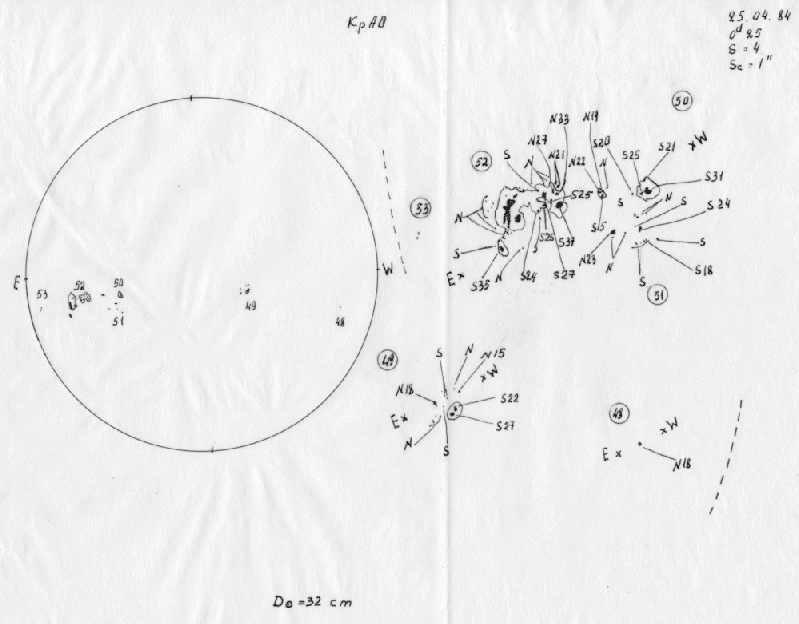 КрАО
25.04.84
0ᵈ25
S = 4
Sc = 1"
E
W
53
52
50
51
49
48
50
W
S21
S25
S31
N
S
S24
S
S18
S
51
N33
N19
N27
N21
N22
S20
N
S
N
52
S25
S
S15
N
S
S35
N
S24
S
S26
S37
S27
N23
N
E
53
49
S
N
N15
W
N18
S22
E
S27
N
S
48
W
E
N18
D⊙ = 32 cm